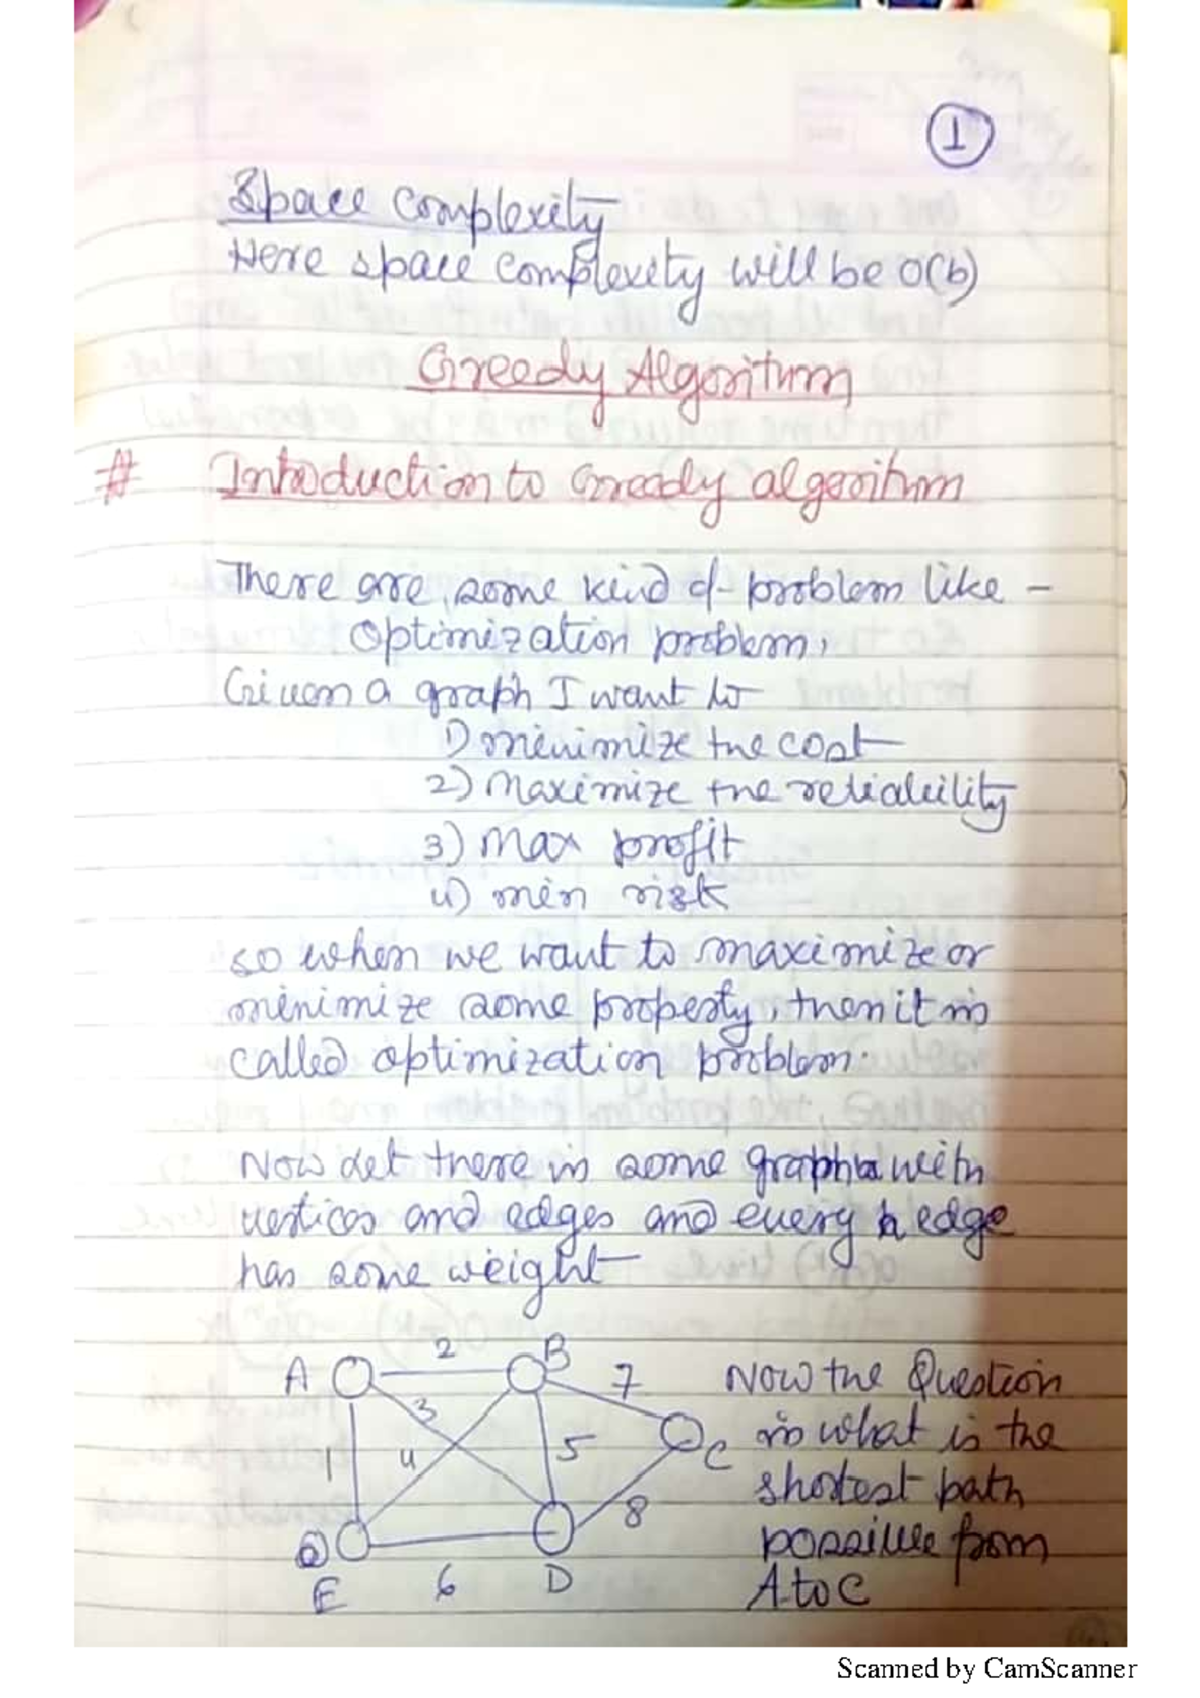 1
Space complexity
Here space complexity will be O(b)
Greedy Algorithm
# Introduction to Greedy algorithm
There are some kind of problem like -
Optimization problem,
Given a graph I want to
1) minimize the cost
2) Maximize the reliability
3) Max profit
4) min risk
so when we want to maximize or
minimize some property, then it is
called optimization problem.
Now let there is some graph with
vertices and edges and every edge
has some weight
A 2 B 7 Now the Question
3 is what is the
1 4 5 C shortest path
8 possible from
E 6 D A to C
Scanned by CamScanner